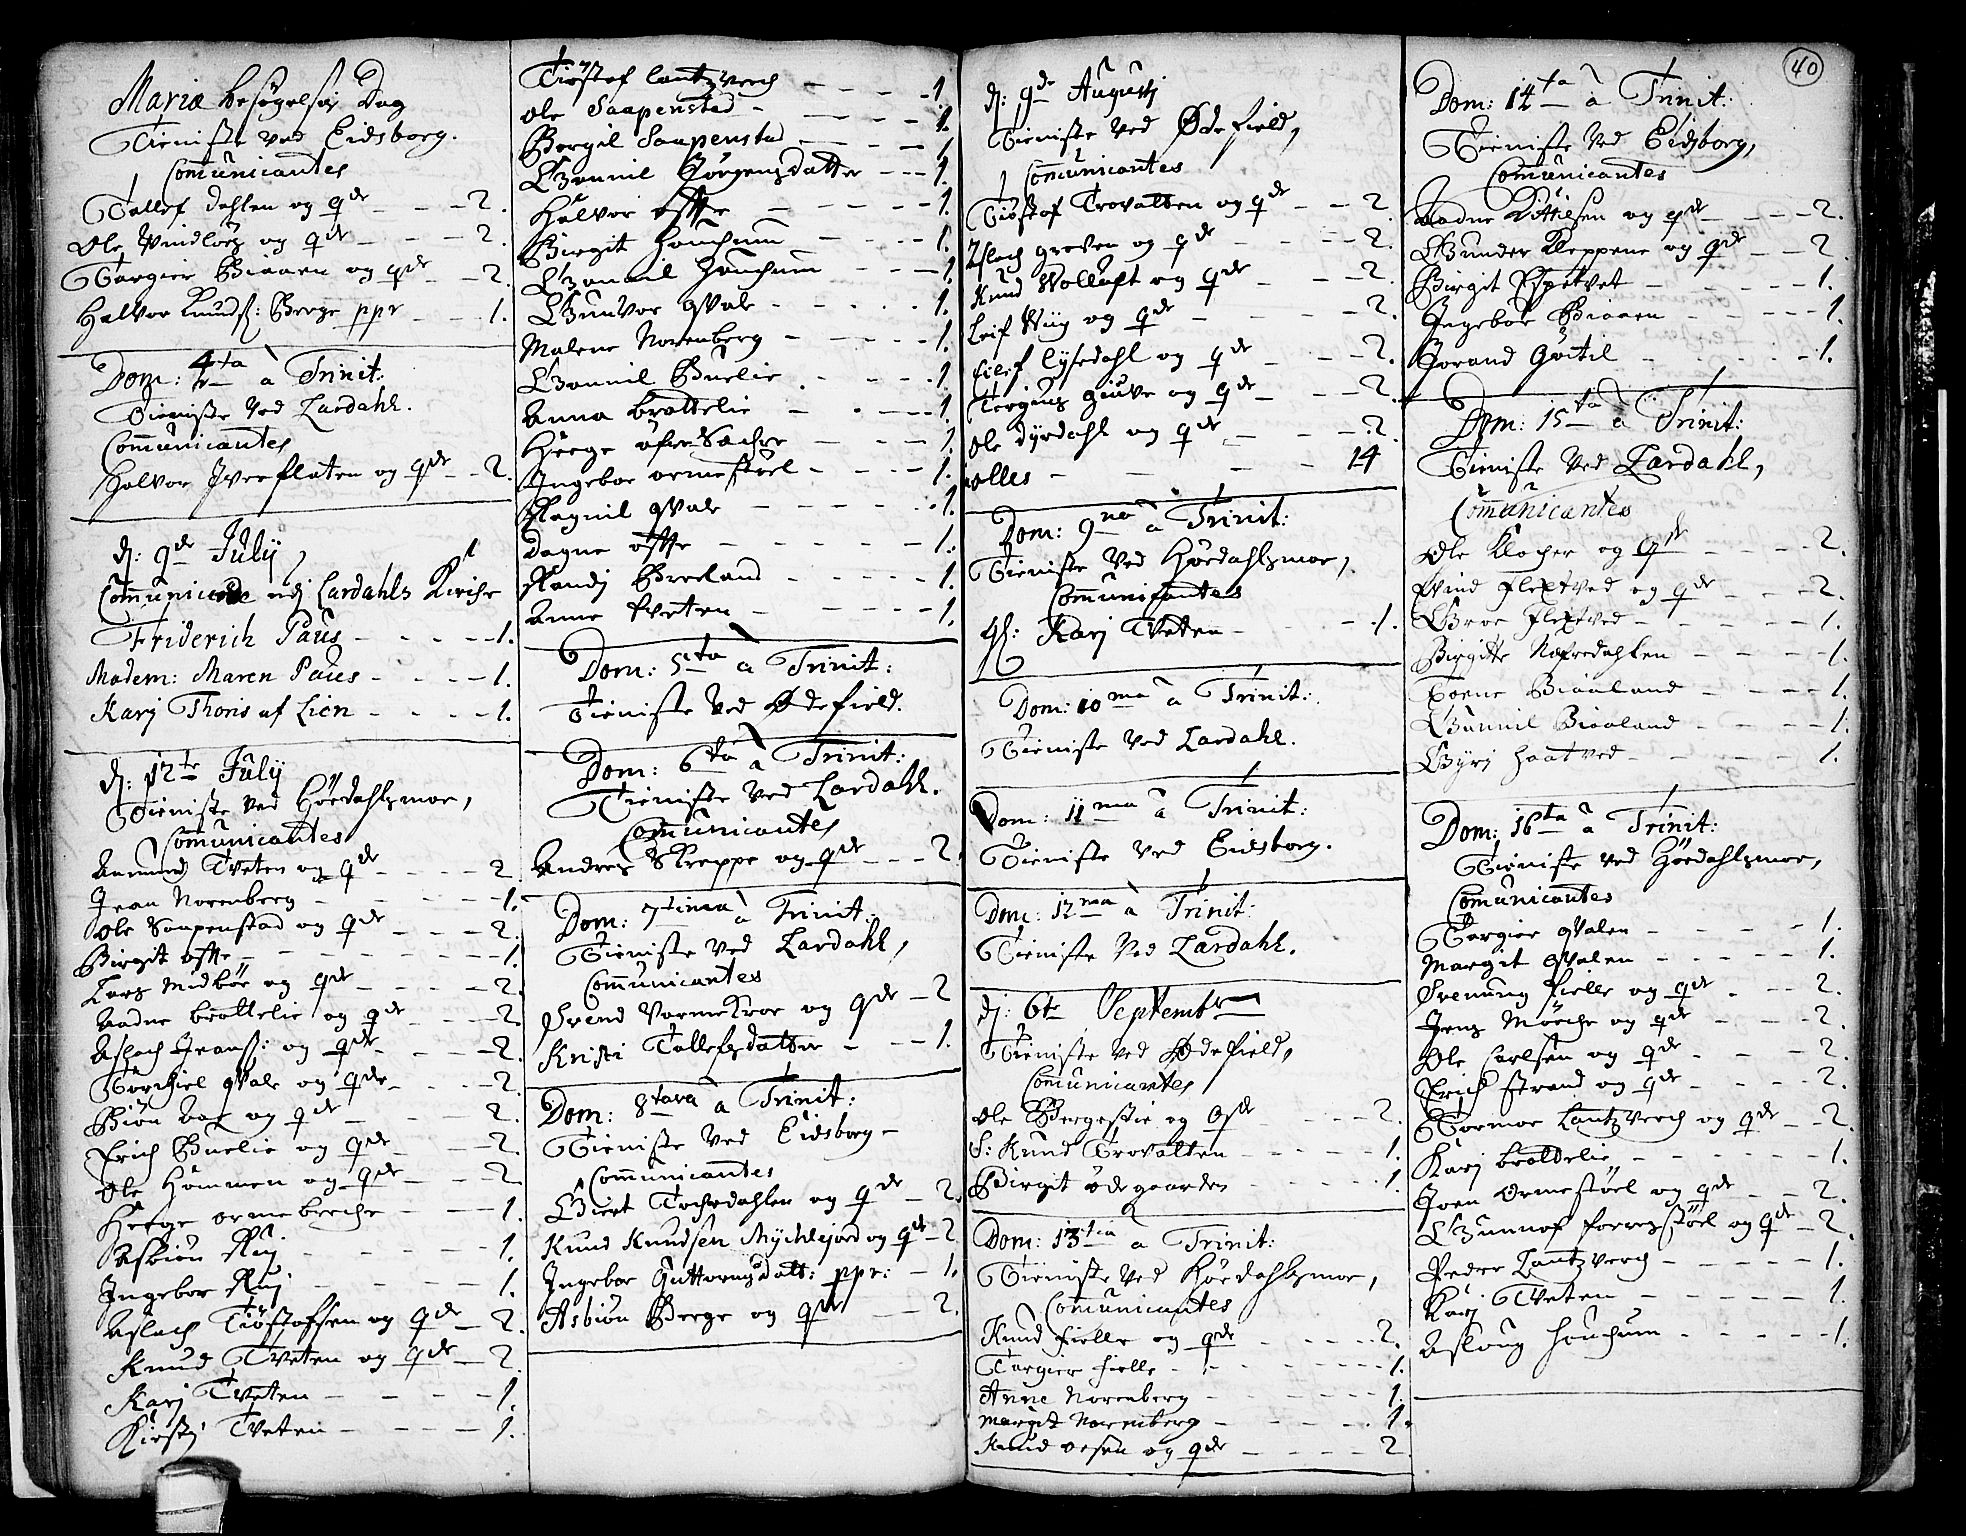 Mariæ besøgelses Dag
Tieniste ved Eidsborg.
Communicantes
Tallef Dahlen og qde - - - 2.
Ole Vindloes og qde - - - 2.
Targier Biaaen og qde - - 2.
Halvor Knuds: Berge ppr - - 1.
Dom: 4ta à Trinit:
Tieniste Ved Lardahl.
Communicantes
Halvor Iverflaten og qde - 2.
d: 9de July
Communicerede udj Lardahls Kirche
Friderich Paus - - - - 1.
Madem: Maren Paus - - - - 1.
Karj Thoris af Lien - - - - 1.
d: 12te July
Tieniste ved Høidahlsmoe,
Communicantes
Aamund Tveten og qde - - - 2
Jean Norenberg - - - - 1.
Ole Saapenstad og qde - - - 2.
Birgit - - - - - 1.
Lars Midbøe og qde - - - 2.
Aadne brottelie og qde - - - 2.
Aslach Jeans: og qde - - - 2.
Torchiel qvale og qde - - - 2.
Biøn Aas og qde - - - 2.
Erich Buelie og qde - - - 2.
Ole Hommen og qde - - - 2
Hæge ormebreche - - - 1.
Asbiøn Ruj - - - - 1.
Ingebor Ruj - - - - 1.
Aslach Tiøstofsen og qde - 2.
Knud Tveten og qde - - 2.
Karj Tveten - - - - 1.
Kirstj Tveten - - - - 1.
Tiøstof Lantzverch - - - - 1
Ole Saapenstad - - - - 1.
Bergil Saapenstad - - - - 1
Gunnil Jørgensdatter - - - 1.
Halvor - - - - 1.
Birgit Houchum - - - - 1.
Gunnil Houchum - - - 1.
Gunvor qvale - - - - 1.
Malene Norenberg - - - - 1.
Gunnil Buelie - - - - 1.
Anna brottelie - - - - 1.
Hæge - - - 1.
Ingebor ormestoel - - - - 1.
Ragnil qvale - - - - - 1.
Dagne - - - - - 1.
Randj Breland - - - - - 1.
Anne Tveten - - - - - 1.
Dom: 5ta à Trinit:
Tieniste Ved Ødefield.
Dom: 6ta à Trinit:
Tieniste Ved Lardahl.
Communicantes
Andres Skreppe og qde - - - 2.
Dom: 7tima à Trinit:
Tieniste Ved Lardahl,
Communicantes
Svend Vormekroe og qde - 2
Kristi Tallefsdatter - - - 1.
Dom: 8tava à Trinit:
Tieniste Ved Eidsborg -
Communicantes
Giert Tochedahlen og qde - 2.
Knud Knudsen Mychlejord og qde - 2
Ingebor Guttormsdatt: ppr: - 1.
Asbiøn Berge og qde - - 2.
d: 9de Augustj
Tieniste Ved Ødefield,
Communicantes
Tiøstof Trovatten og qde - - 2
Islach Groven og qde - - - 2.
Knud Wolluft og qde - - - 2
Leif Wiig og qde - - - - 2.
Eilef Lysedahl og qde - - - 2.
Tergius giuve og qde - - - 2
Ole Dyrdahl og qde - - - 2.
alles - - - - 14
Dom: 9na à Trinit:
Tieniste Ved Høidahlsmoe,
Communicantes
Karj Tveten - - - 1.
Dom: 10ma à Trinit:
Tieniste Ved Lardahl.
Dom: 11ma à Trinit:
Tieniste Ved Eidsborg.
Dom: 12ma à Trinit:
Tieniste Ved Lardahl.
d: 6te Septembr
Tieniste ved Ødefield,
Communicantes
Ole Bergestie og qde - - - 2.
S: Knud Trovatten - - - - 1.
Birgit Ødegaarden - - - - 1.
Dom: 13tia à Trinit:
Tieniste Ved Høidahlsmoe,
Communicantes
Knud fielle og qde - - - - 2.
Targier fielle - - - - - 1.
Anne Norenberg - - - - - 1.
Margit Norenberg - - - - 1.
Knud og qde - - - - 2
40
Dom: 14ta à Trinit:
Tieniste Ved Eidsborg,
Communicantes
Aadne Kittilsen og qde - - - 2.
Gunder Kleppene og qde - - 2
Birgit Espetvet - - - - - 1.
Ingebor Biaaen - - - - - 1.
Jorand Gøitil - - - - - 1.
Dom: 15ta à Trinit:
Tieniste Ved Lardahl,
Communicantes
Ole Klocher og qde - - - - 2.
Evind Flextved og qde - - - 2.
Groe Flextved - - - - - 1.
Birgitte Nafredahlen - - - - 1.
Toene Biaaland - - - - 1.
Gunnil Biaaland - - - - 1.
Gyrj haatved - - - - - 1.
Dom: 16ta à Trinit:
Tieniste Ved Høidahlsmoe,
Communicantes
Targier qvalen - - - - - 1.
Margit qvalen - - - - - 1.
Svenung fielle og qde - - - 2.
Jens Mørche og qde - - - 2.
Ole Carlsen og qde - - - 2.
Erich strand og qde - - - 2.
Tormoe Lantzverch og qde - 2.
Karj brottelie - - - - - 1.
Joen Ormestøel og qde - - 2.
Gunnof forrestøel og qde - 2.
Peder Lantzverch - - - - - 1.
Karj Tveten - - - - - 1.
Aslaug Houchum - - - - - 1.